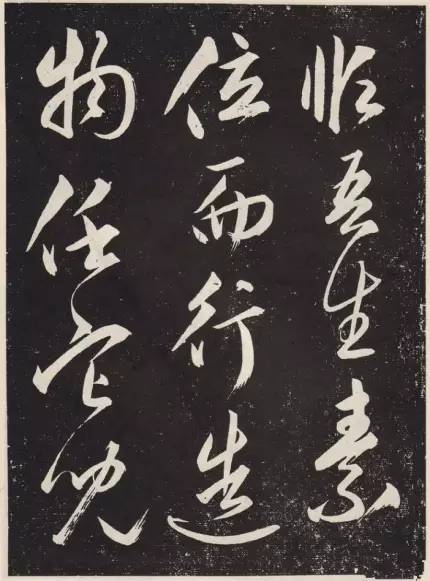 吾生素
位而行造
物任它兒